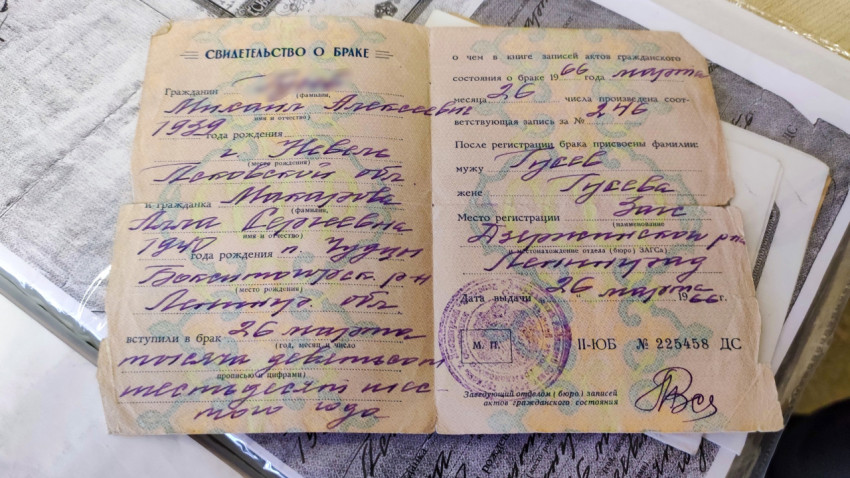 СВИДЕТЕЛЬСТВО О БРАКЕ
Гражданин
(фамилия,
Михаил Алексеевич
имя и отчество)
1939 года рождения
г. Невель
(место рождения)
Псковской обл
и гражданка Макарова
(фамилия,
Алла Сергеевна
имя и отчество)
1940 года рождения
(место рождения)
Ленингр. обл
вступили в брак 26 марта
(год, месяц и число
тысяча девятьсот
прописью и цифрами)
шестьдесят шес
того года
о чем в книге записей актов гражданского
состояния о браке 1966 года марта
месяца 26 числа произведена соот-
ветствующая запись за № 246
После регистрации брака присвоены фамилии:
мужу Гусев
жене Гусева
Место регистрации Загс
(наименование
Дзержинского р-на
и местонахождение отдела (бюро) ЗАГСа)
Ленинград
Дата выдачи 26 марта 1966 г.
М. П.
II-ЮБ № 225458 ДС
Заведующий отделом (бюро) записей
актов гражданского состояния